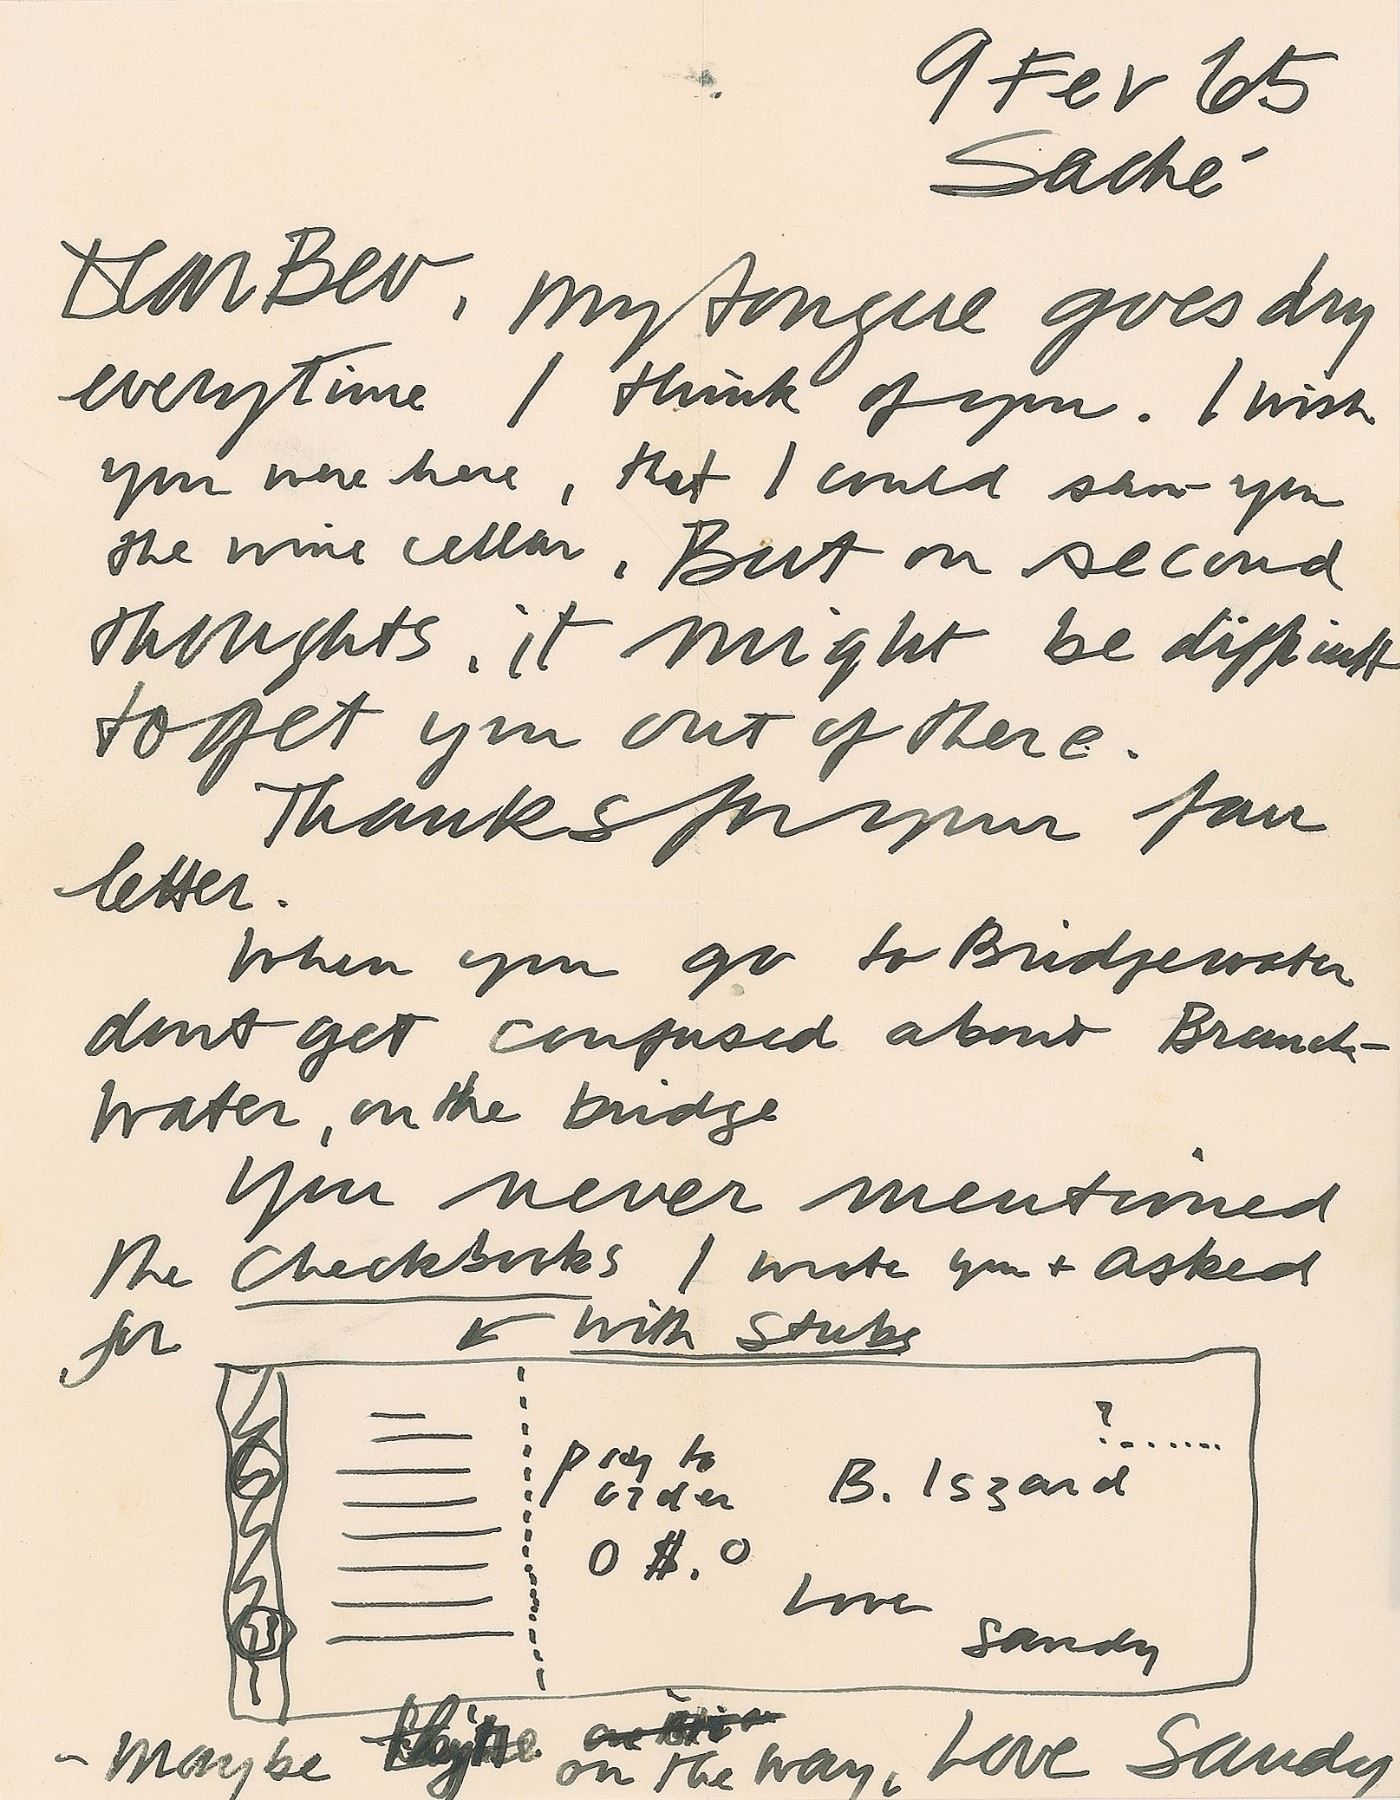 9 Fev 65
Saché
Dear Bev, my tongue goes dry
everytime I think of you. I wish
you were here, that I could show you
the wine cellar. But on second
thoughts, it might be difficult
to get you out of there.
Thanks for your fair
letter.
When you go to Bridgewater
dont get confused about Branch-
Water, on the bridge
You never mentioned
the Checkbooks I wrote you + asked
for
with stubs
?.......
pay to
order
B. Iszard
0 $.0
Love
Sandy
- Maybe on the way, Love Sandy